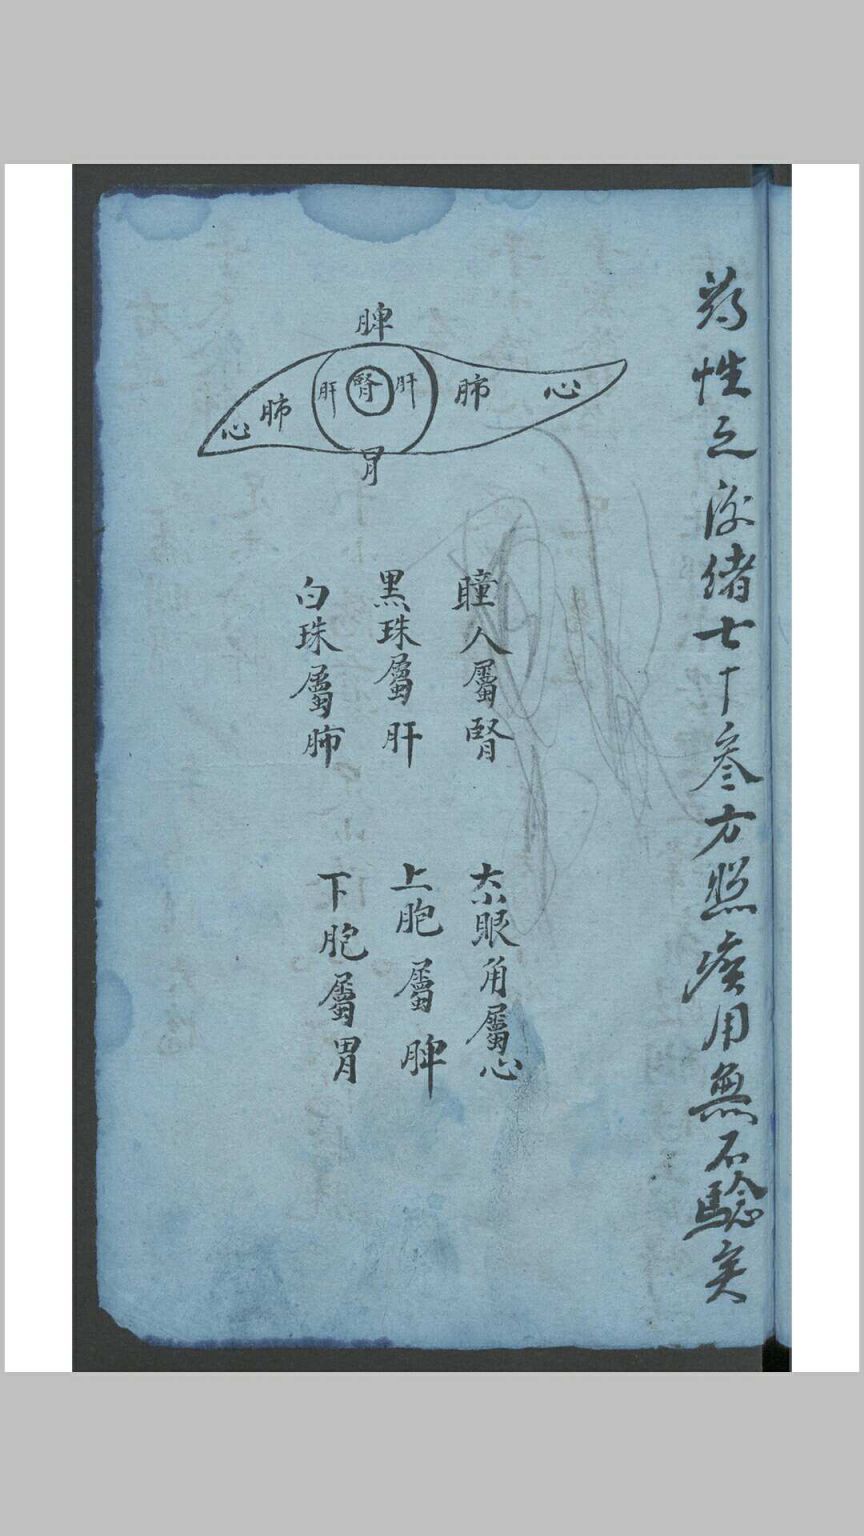 藥性之深緒七十叄方照症用無不驗矣
脾
心 肺 肝 腎 肝 肺 心
胃
瞳人屬腎
黑珠屬肝
白珠屬肺
眼角屬心
上胞屬脾
下胞屬胃